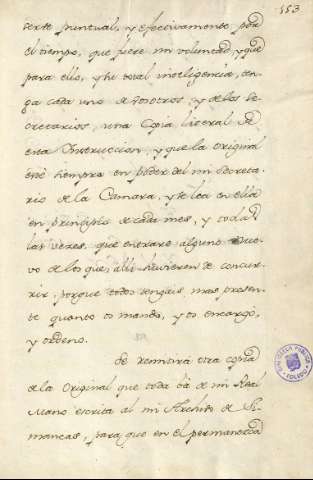 153
serve puntual, y efectivamente por
el tiempo, que fuere mi voluntad, y que
para ello, y su total inteligencia, ten-
ga cada uno de vosotros, y de los se-
cretarios, una Copia literal de
esta Instruccion, y que la original
esté siempre en poder del mi Secreta-
rio de la Camara, y se lea en ella
en principio de cada mes, y todas
las veces, que entrare alguno Nue-
vo de los que allí huvieren de concur-
rir, porque todos tengais mas presen-
te quanto os mando, y os encargo,
y ordeno.
Se remitirá otra copia
de la Original que toda vá de mi Real
Mano escrita al mi Archivo de Si-
mancas, para que en el permanezca
BIBLIOTECA PUBLICA
TOLEDO